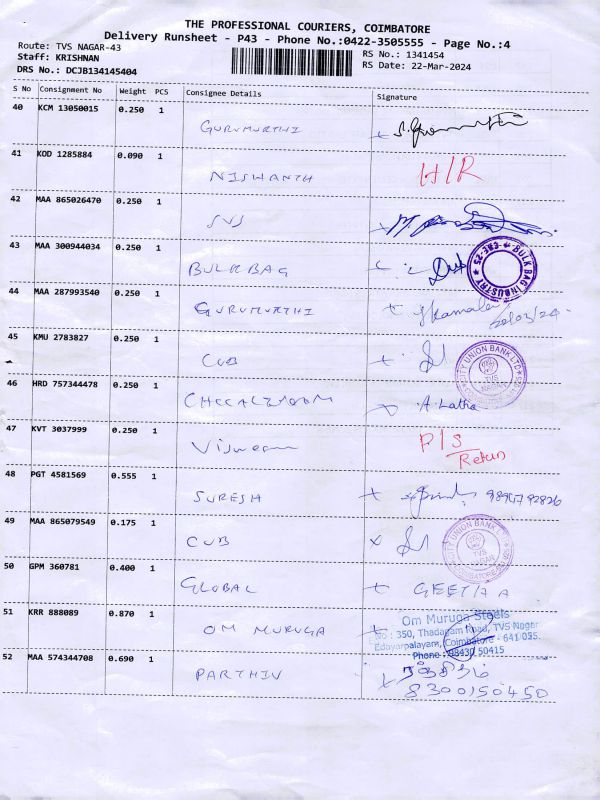 THE PROFESSIONAL COURIERS, COIMBATORE
Delivery Runsheet - P43 - Phone No.:0422-3505555 - Page No.:4
Route: TVS NAGAR-43
Staff: KRISHNAN
DRS No.: DCJB134145404
RS No.: 1341454
RS Date: 22-Mar-2024
S No Consignment No Weight PCS Consignee Details Signature
40 KCM 13050015 0.250 1
GURUMURTHI
41 KOD 1285884 0.090 1
NISWANTH H/R
42 MAA 865026470 0.250 1
SVS
43 MAA 300944034 0.250 1
BULKBAG
BULK BAG INDUSTRY
44 MAA 287993540 0.250 1
GURUMURTHI
45 KMU 2783827 0.250 1
CUB
CITY UNION BANK LTD
TVS NAGAR
46 HRD 757344478 0.250 1
A. Latha
47 KVT 3037999 0.250 1
P/S
Return
48 PGT 4581569 0.555 1
SURESH
49 MAA 865079549 0.175 1
CUB
CITY UNION BANK LTD
TVS NAGAR
50 GPM 360781 0.400 1
GLOBAL GEETHA
51 KRR 888089 0.870 1
OM MURUGA
Om Muruga Steels
No : 350, Thadagam Road, TVS Nagar
Edayarpalayam, Coimbatore - 641 025.
Phone : 98430 50415
52 MAA 574344708 0.690 1
PARTHIV
8300150450